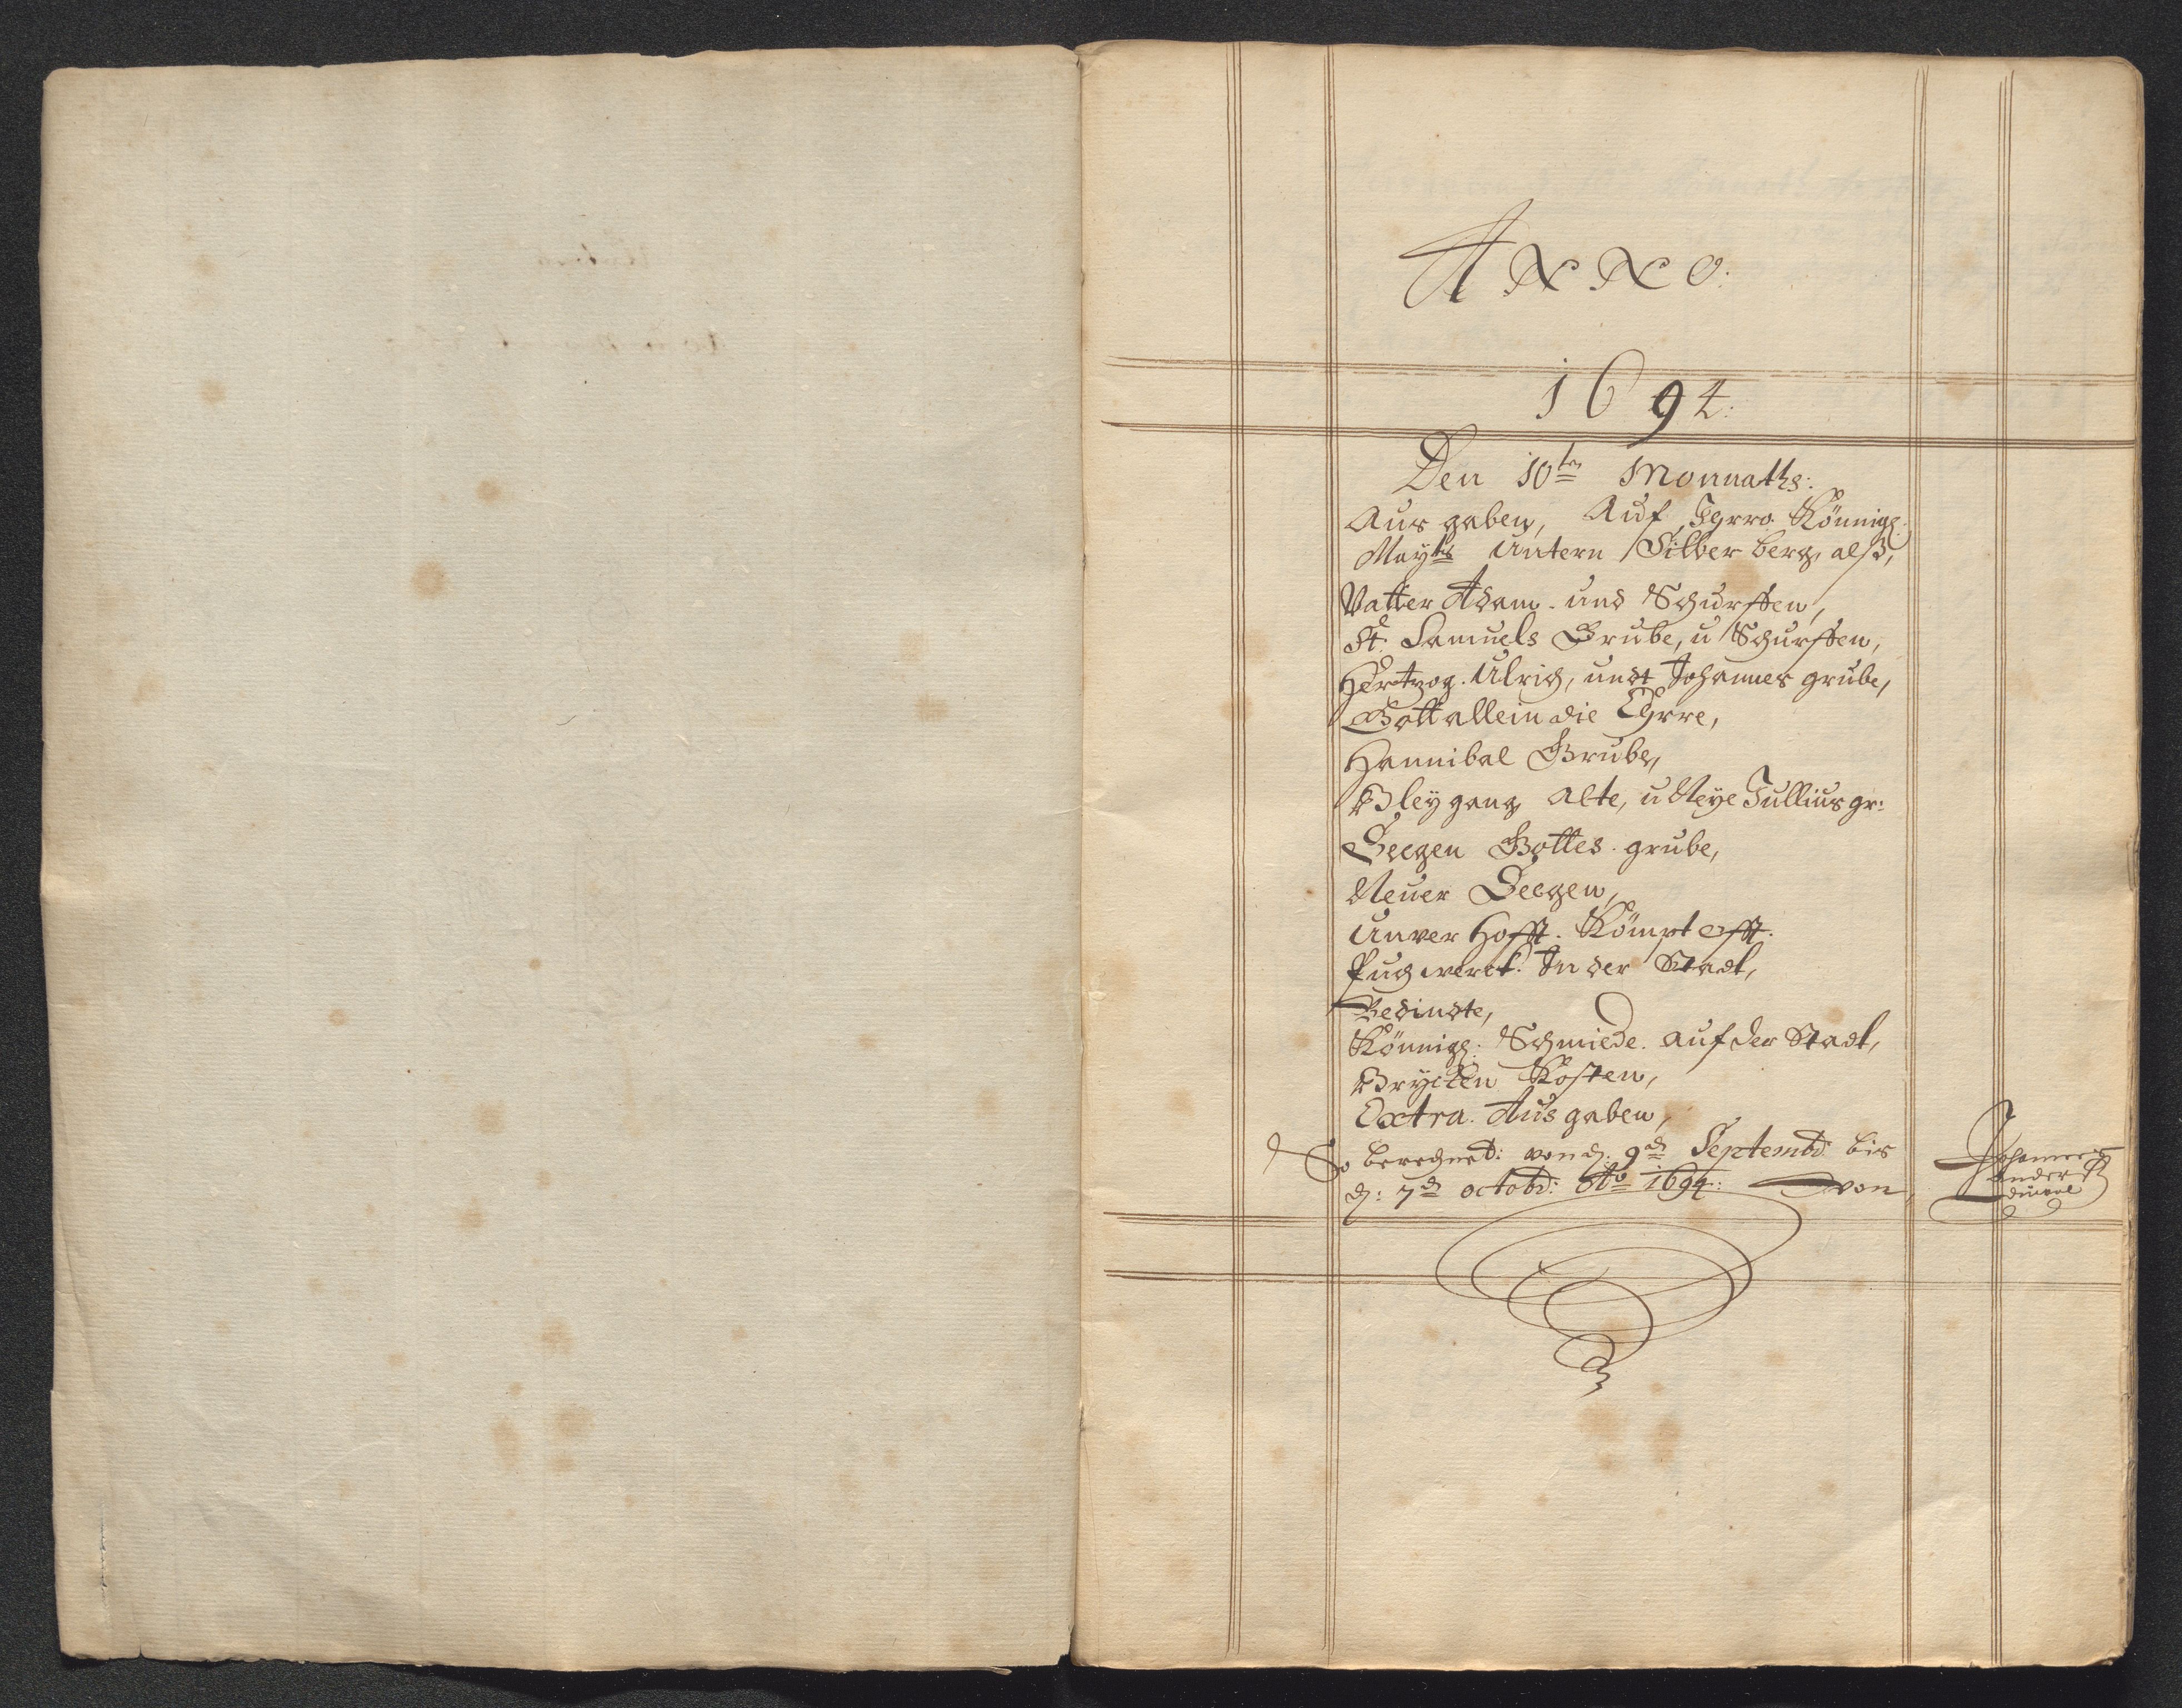 ANNO:
1694:
Den 10ten Monnaths:
Aus gaben, Auf Ihrro Könnigl:
Mayts Untern Silber berg, alß,
Vatter Adam. und Schurffen,
St. Samuels Grube, u Schurffen,
Hertzog. Ulrich, undt Johannes grube,
Gott allein die Ehrre,
Hannibal Grube,
Bleygang alte, u Neye Jullius gr:
Seegen Gottes. grube,
Neuer Seegen,
Unver hofft. Kömpt offt.
Puchwerck. In der Stadt,
Bedindte,
Könnigl: Schmiede. auf der Stadt,
Brücken Kosten,
Extra. Ausgaben,
So berechnet: von d. 9d Septembr bis
d: 7d octobr: Ao 1694: von
Johannes